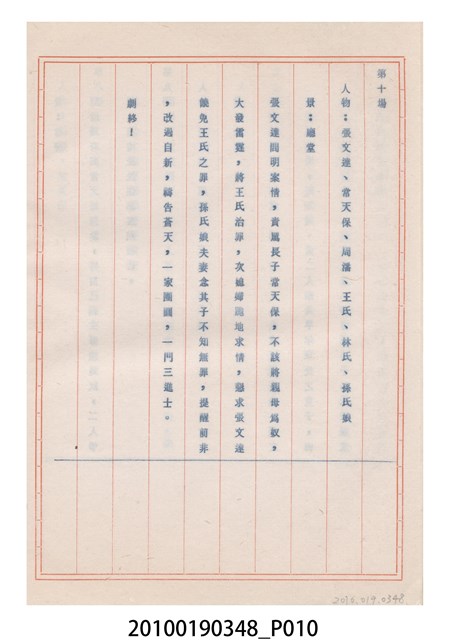 第十場
人物：張文達、常天保、周滿、王氏、林氏、孫氏娘
景：廳堂
張文達問明案情，責罵長子常天保，不該將親母為奴，
大發雷霆，將王氏治罪，次媳婦跪地求情，懇求張文達
饒免王氏之罪，孫氏娘夫妻念其子不知無罪，提醒前非
，改過自新，禱告蒼天，一家團圓，一門三進士。
劇終！
2010.019.0348
20100190348_P010